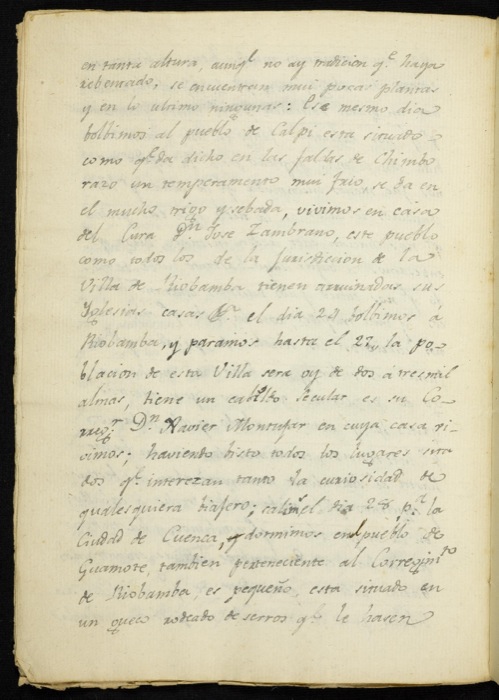 en tanta altura, aunq.e no ay tradicion q.e haya
rebentado, se encuentran mui pocas plantas
y en lo ultimo ningunas: Ese mesmo dia
bolbimos al pueblo de Calpi esta situado
como q.eda dicho en las faldas de Chimbo
razo un temperamento mui frio, se da en
el mucho trigo y sebada, vivimos en casa
del Cura D.n Jose Zambrano, este pueblo
como todos los de la Jurisdicion de la
Villa de Riobamba tienen arruinadas sus
Yglesias casas &.a el dia 24 bolbimos á
Riobamba, y paramos hasta el 27, la po-
blacion de esta Villa sera oy de dos á tres mil
almas, tiene un cabildo secular es su Co-
rreg.r D.n Xavier Montufar en cuya casa vi-
vimos; haviendo bisto todos los lugares sita
dos q.e interezan tanto la curiosidad de
qualesquiera biajero; salim el dia 28 p.a la
Ciudad de Cuenca, y dormimos en el pueblo de
Guamote, tambien perteneciente al Corregim.to
de Riobamba, es pequeño, esta situado en
un queco rodeado de serros q.e le hasen